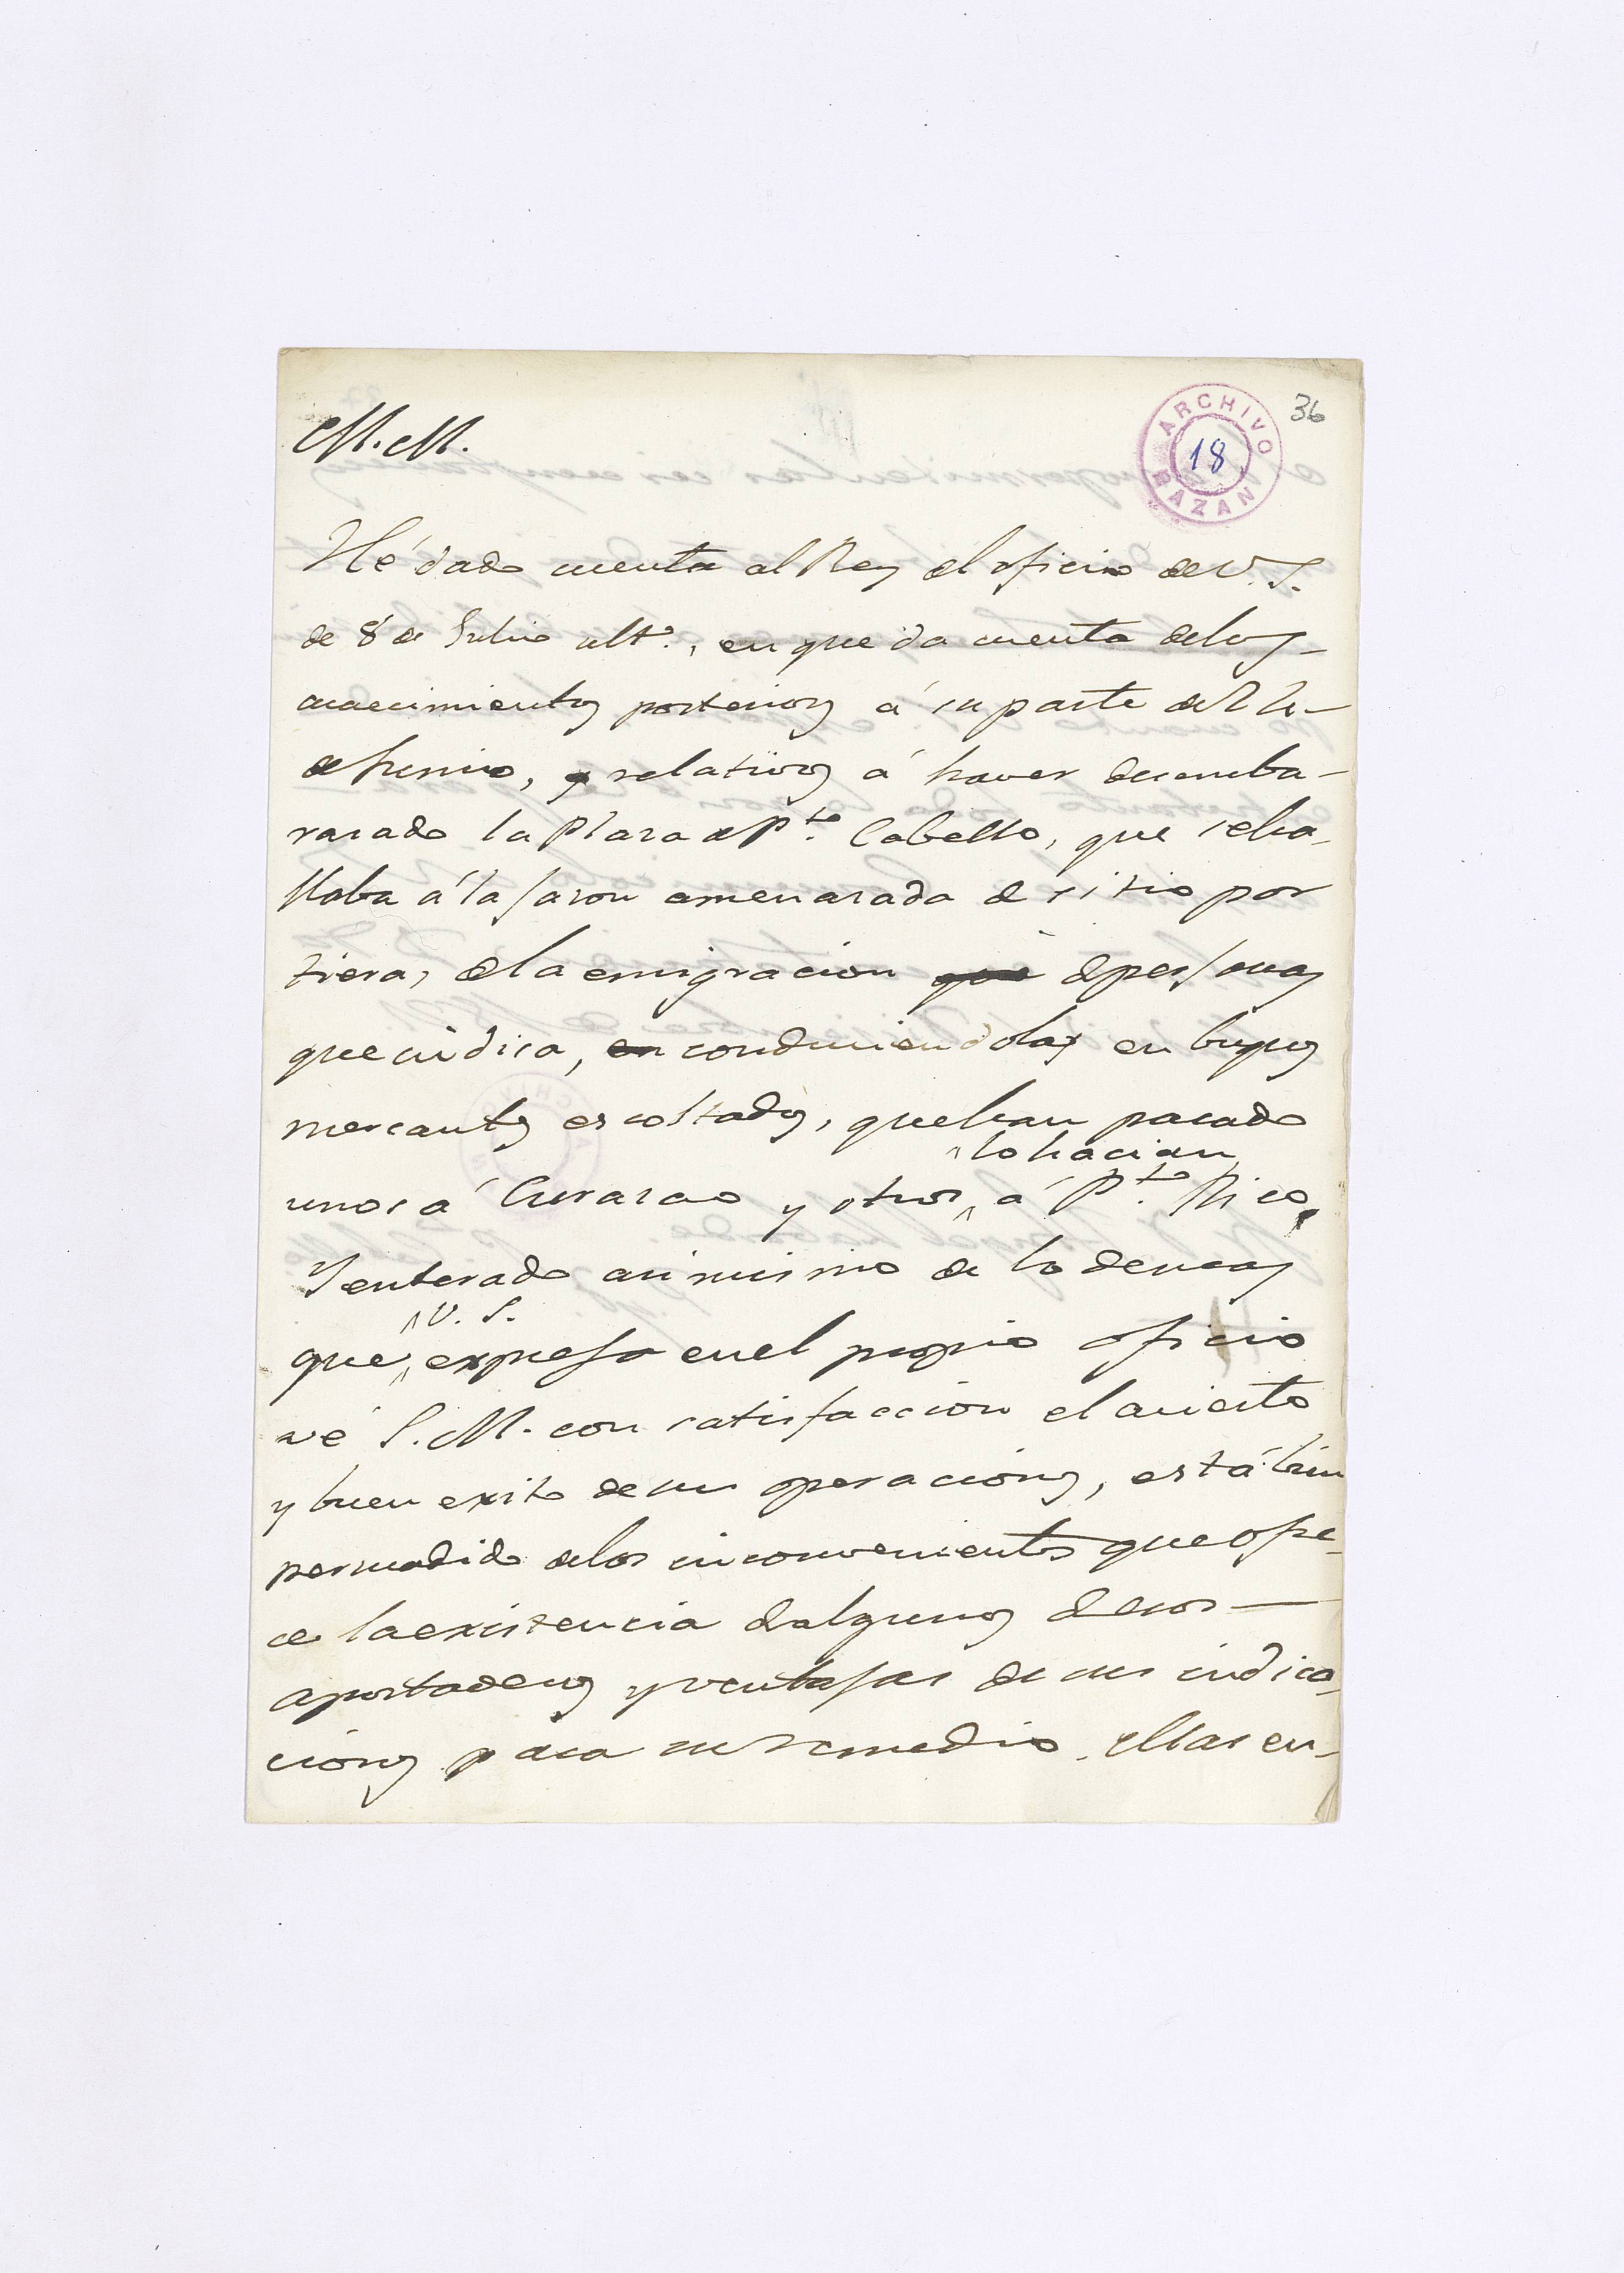 36
ARCHIVO
18
BAZAN
M.M.
Hé dado cuenta al Rey el oficio de V. S.
de 8 de Julio ultº., en que da cuenta delos
acaecimientos posteriores á su parte de
de Junio, y relativos á haver desemba-
razado la Plaza de Ptº. Cabello, que seha-
llaba á la sazon amenazada de sitio por
tierra, dela emigracion que de personas
que indica, en conduciendolas en buques
mercantes escoltados, quehan pasado
lo hacian
unos á Curazao y otros á Ptº. Rico.
Y enterado asimismo de lo demas
V. S.
que expresa enel propio oficio
vé S. M. con satisfaccion el acierto
y buen exito de sus operaciones, está bien
persuadido delos inconvenientes que ofre-
ce la existencia de algunos de esos
apostaderos y ventajas de sus indica-
ciones para su remedio. Mas en-